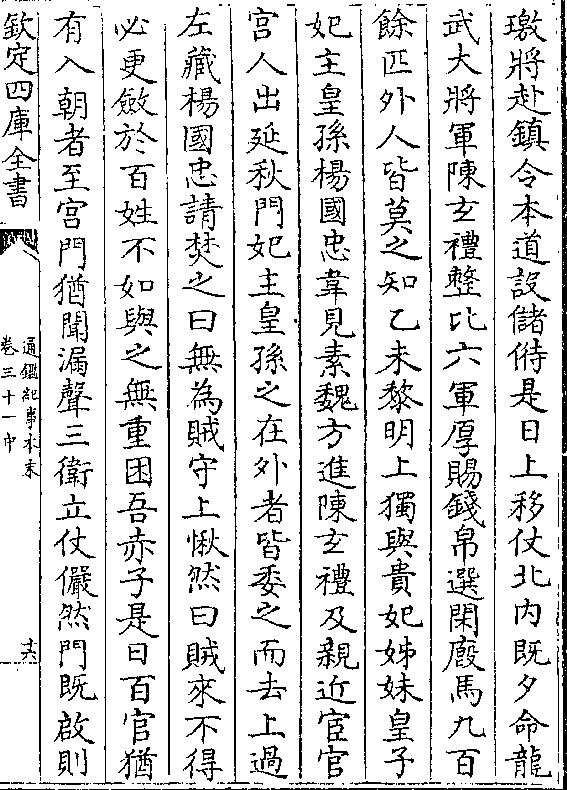 璬將赴鎮令本道設儲偫是日上移仗北内既夕命龍
武大將軍陳玄禮整比六軍厚賜錢帛選閑廏馬九百
餘匹外人皆莫之知乙未黎明上獨與貴妃姊妹皇子
妃主皇孫楊國忠韋見素魏方進陳玄禮及親近宦官
宫人出延秋門妃主皇孫之在外者皆委之而去上過
左藏楊國忠請焚之曰無為賊守上愀然曰賊來不得
必更斂於百姓不如與之無重困吾赤子是日百官猶
有入朝者至宫門猶聞漏聲三衛立仗儼然門既啟則
欽定四庫全書
通鑑紀事本末
卷三十一中
十六